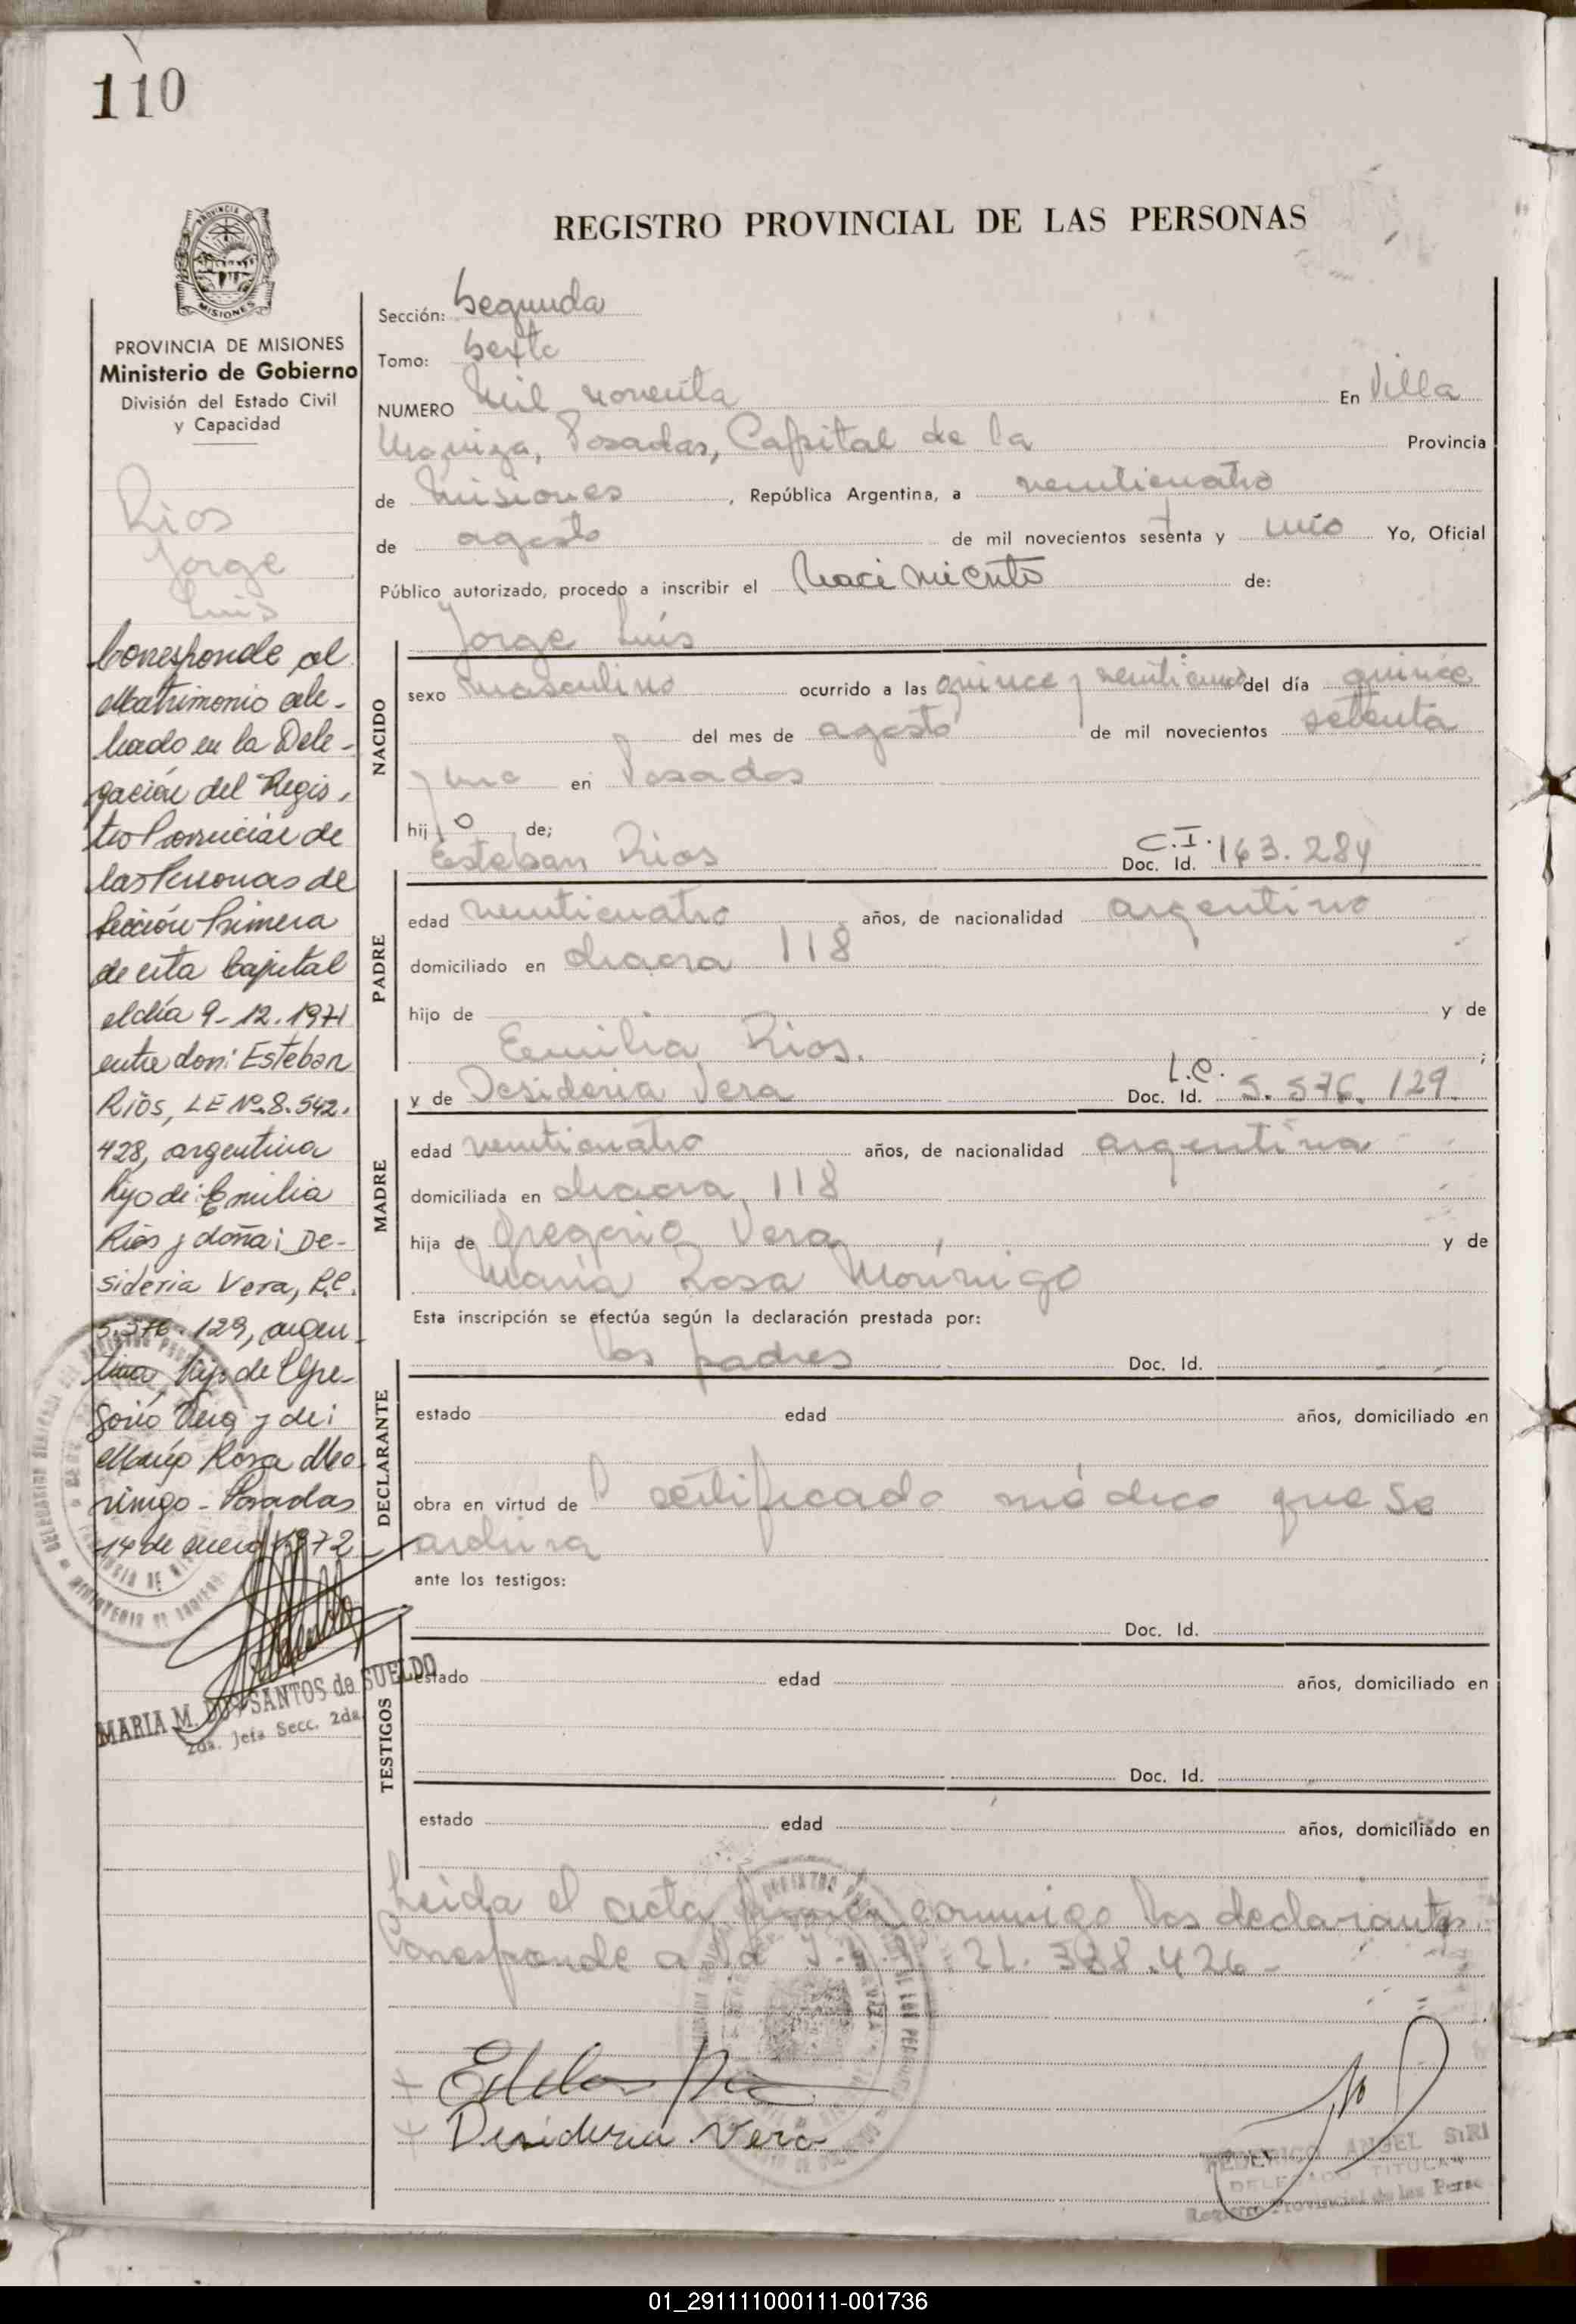 110
REGISTRO PROVINCIAL DE LAS PERSONAS
MISIONES
PROVINCIA DE MISIONES
Ministerio de Gobierno
División del Estado Civil
y Capacidad
Rios
Jorge
Luis
Corresponde al
Matrimonio cele-
brado en la Dele-
gación del Regis-
tro Provincial de
las Personas de
Sección Primera
de esta Capital
el día 9-12-1971
entre don: Esteban
Ríos, LE Nº 8.542.
428, argentina
hijo de: Emilia
Ríos y doña: De-
sideria Vera, L.C.
5.576.129, argen-
tina hija de Gre-
gorio Vera y de:
María Rosa Mo
rinigo - Posadas
14 de enero 1972
MARIA M. DOS SANTOS de SUELDO
2da. Jefa Secc. 2da.
Sección: Segunda
Tomo: Sexto
NUMERO Mil noventa En Villa
Urquiza, Posadas, Capital de la Provincia
de Misiones, República Argentina, a veinticuatro
de agosto de mil novecientos sesenta y uno Yo, Oficial
Público autorizado, procedo a inscribir el Nacimiento de:
Jorge Luis
NACIDO
sexo masculino ocurrido a las quince y del día quince
del mes de agosto de mil novecientos setenta
y uno en Posadas
hijo de;
Esteban Rios C.I. Doc. Id. 163.284
PADRE
edad veinticuatro años, de nacionalidad argentino
domiciliado en chacra 118
hijo de y de
Emilia Rios. ;
y de Desideria Vera L.C. Doc. Id. 5.576.129.
MADRE
edad veinticuatro años, de nacionalidad argentina
domiciliada en chacra 118
hija de Gregorio Vera y de
María Rosa Morinigo
Esta inscripción se efectúa según la declaración prestada por:
los padres Doc. Id.
DECLARANTE
estado edad años, domiciliado en
obra en virtud de certificado médico que se
archiva
ante los testigos:
Doc. Id.
TESTIGOS
estado edad años, domiciliado en
Doc. Id.
estado edad años, domiciliado en
Leida el acta firman conmigo los declarantes
Corresponde a la 388.426-
Esteban
Desideria Vera
FEDERICO ANGEL SIRI
DELEGADO TITULAR
Registro Provincial de las Perso
01_291111000111-001736